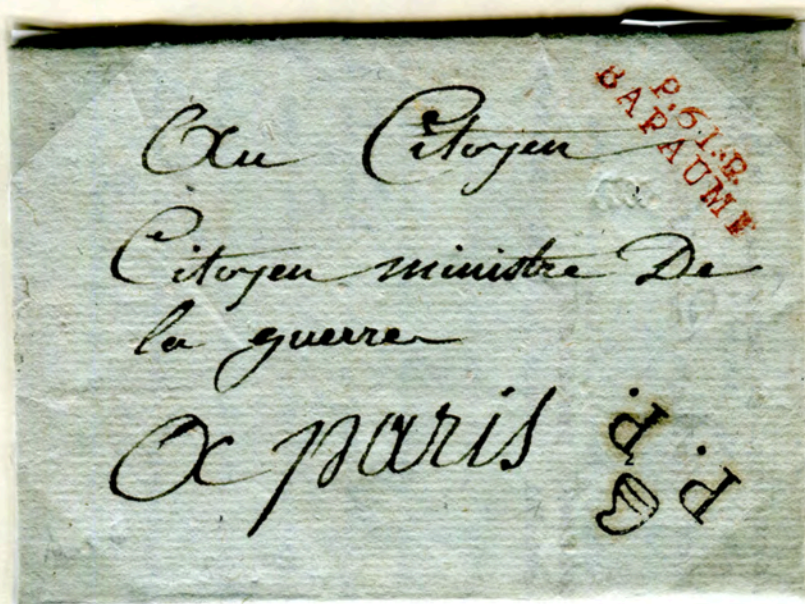 P.61.P.
BAPAUME
Au Citoyen
Citoyen ministre De
la guerre
A paris
P. P.